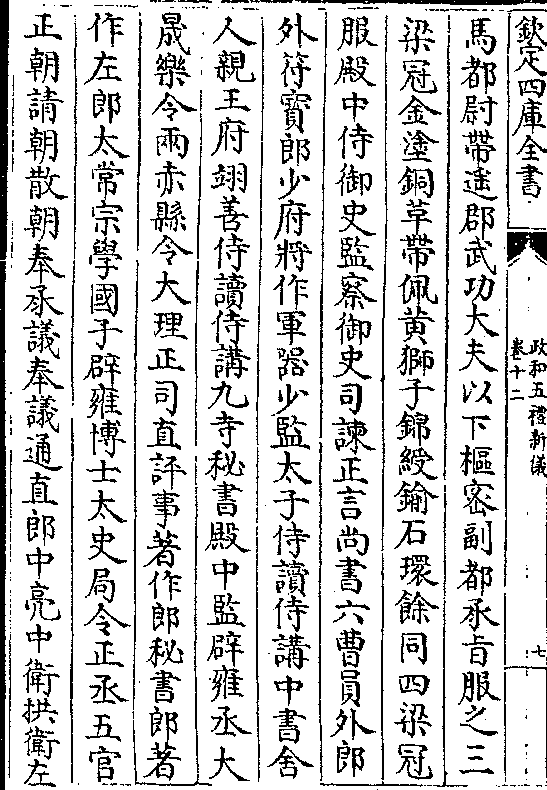 欽定四庫全書
政和五禮新儀
卷十二
七
馬都尉帶遥郡武功大夫以下樞密副都承旨服之三
梁冠金塗銅草帶佩黄獅子錦綬鍮石環餘同四梁冠
服殿中侍御史監察御史司諫正言尚書六曹員外郎
外符寳郎少府將作軍器少監太子侍讀侍講中書舍
人親王府翊善侍讀侍講九寺秘書殿中監辟雍丞大
晟樂令兩赤縣令大理正司直評事著作郎秘書郎著
作左郎太常宗學國子辟雍博士太史局令正丞五官
正朝請朝散朝奉承議奉議通直郎中亮中衛拱衛左